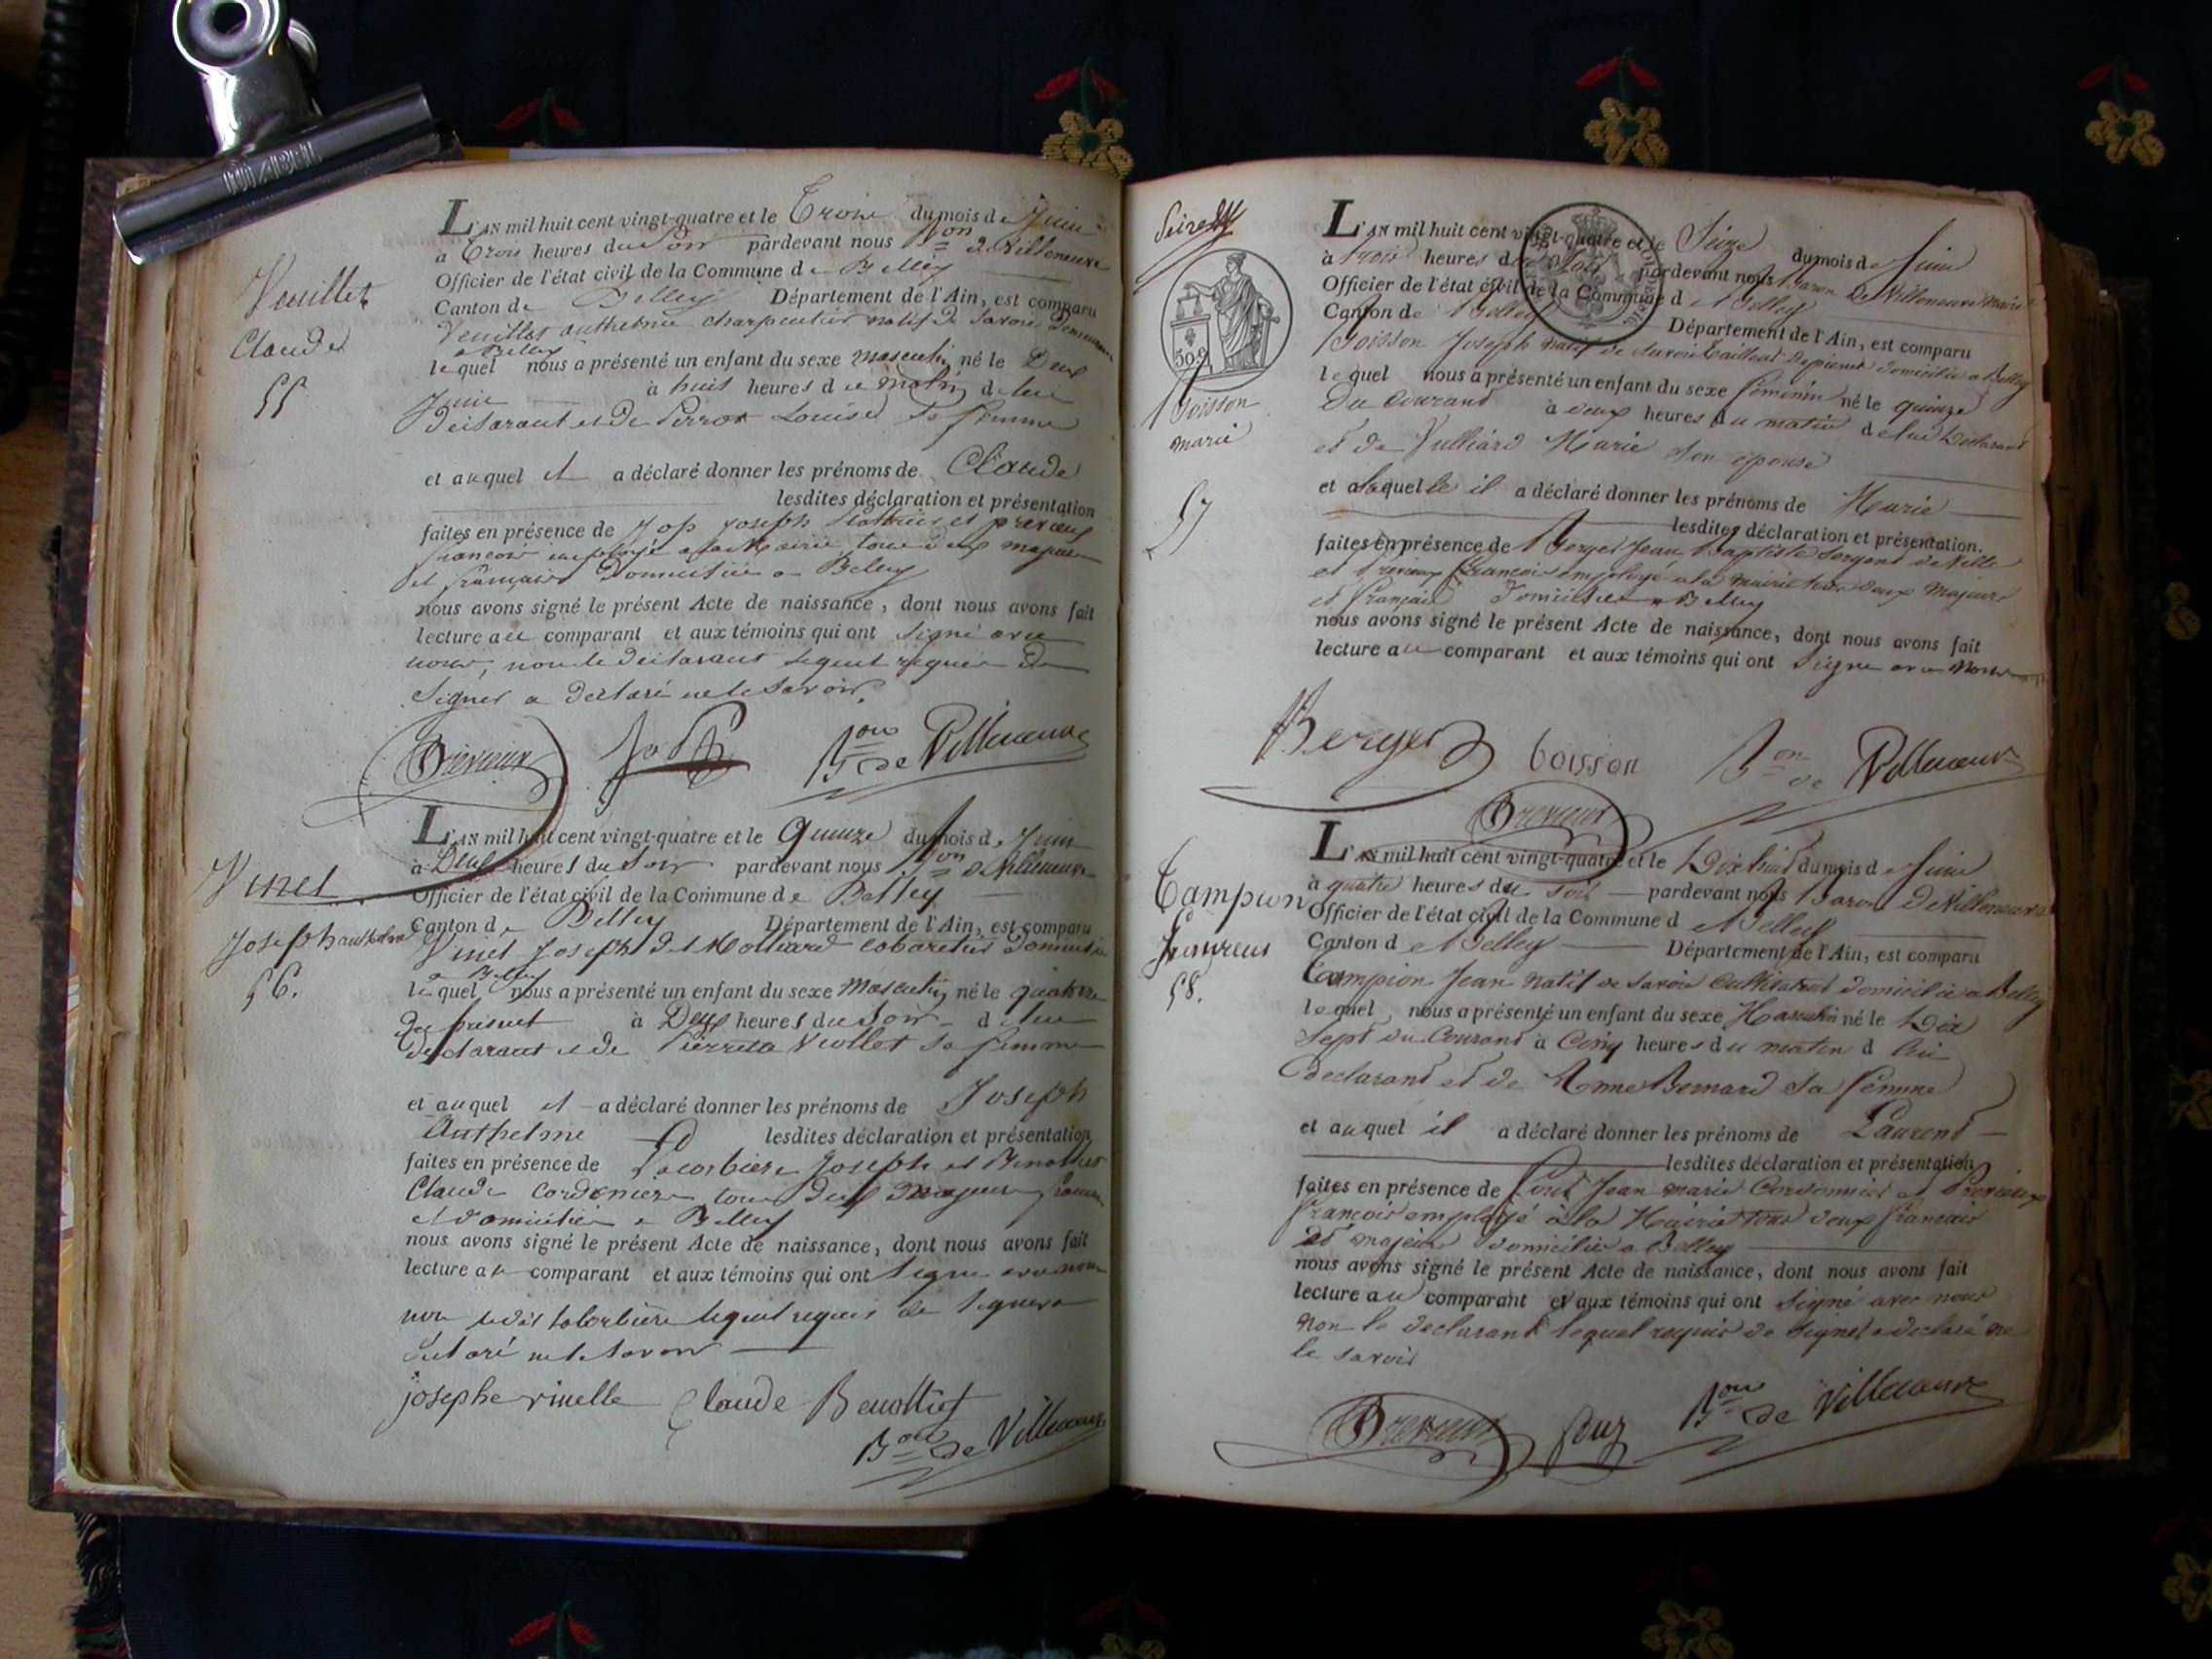 Veuillet
Claude
55
L'AN mil huit cent vingt-quatre et le Trois du mois de Juin
à Trois heures du Soir pardevant nous Bon de Villeneuve
Officier de l'état civil de la Commune de Belley
Canton de Belley Département de l'Ain, est comparu
Veuillet anthelme charpentier natif de Savoie
a Belley
lequel nous a présenté un enfant du sexe masculin né le Deux
Juin à huit heures du matin de lui
déclarant et de Perrot Louise sa femme
et auquel il a déclaré donner les prénoms de Claude
lesdites déclaration et présentation
faites en présence de Joseph et previeux
françois employé a la Mairie tous deux majeurs
et français Domiciliés a Belley
nous avons signé le présent Acte de naissance, dont nous avons fait
lecture au comparant et aux témoins qui ont signé avec
nous, non le déclarant lequel requis de
signer a déclaré ne le savoir.
Bon de Villeneuve
Vinet
Joseph anthelme
56.
L'AN mil huit cent vingt-quatre et le Quinze du mois de Juin
à Deux heures du Soir pardevant nous Bon de Villeneuve
Officier de l'état civil de la Commune de Belley
Canton de Belley Département de l'Ain, est comparu
Vinet Joseph cabaretier Domicilié
a Belley
lequel nous a présenté un enfant du sexe Masculin né le quatorze
du présent à Deux heures du Soir de lui
déclarant et de Pierrette Viollet sa femme
et auquel il a déclaré donner les prénoms de Joseph
Anthelme lesdites déclaration et présentation
faites en présence de Lacorbiere Joseph et Benottier
Claude Cordonniers tous deux Majeurs français
et domiciliés a Belley
nous avons signé le présent Acte de naissance, dont nous avons fait
lecture au comparant et aux témoins qui ont signé avec nous
non ledit lacorbiere lequel requis de signer a
déclaré ne le savoir
josephe vinelle Claude Benottier
Bon de Villeneuve
50 c
Boisson
marie
57
L'AN mil huit cent vingt-quatre et le Seize du mois de Juin
à trois heures du Soir pardevant nous Baron de Villeneuve Maire
Officier de l'état civil de la Commune de Belley
Canton de Belley Département de l'Ain, est comparu
Boisson Joseph natif de Savoie tailleur de pierres domicilié a Belley
lequel nous a présenté un enfant du sexe féminin né le quinze
du Courant à deux heures du matin de lui Déclarant
et de Vulliard Marie son épouse
et a laquelle il a déclaré donner les prénoms de Marie
lesdites déclaration et présentation.
faites en présence de Berger Jean Baptiste Sergent de Ville
et Previeux françois employé a la mairie tous deux Majeurs
et français Domiciliés a Belley
nous avons signé le présent Acte de naissance, dont nous avons fait
lecture au comparant et aux témoins qui ont Signé avec Nous
Berger boisson Bon de Villeneuve
Campion
Laurent
58.
L'AN mil huit cent vingt-quatre et le Dix huit du mois de Juin
à quatre heures du soir pardevant nous Baron de Villeneuve
Officier de l'état civil de la Commune d e Belley
Canton d e Belley Département de l'Ain, est comparu
Campion Jean natif de Savoie Cultivateur domicilié a Belley
lequel nous a présenté un enfant du sexe Masculin né le Dix
Sept du Courant à Cinq heures du matin d lui
declarant et de Anne Bernard sa femme
et auquel il a déclaré donner les prénoms de Laurent
lesdites déclaration et présentation
faites en présence de Jean marie Cordonnier et Previeux
françois employé à la Mairie tous deux français
et majeurs domiciliés a Belley
nous avons signé le présent Acte de naissance, dont nous avons fait
lecture au comparant et aux témoins qui ont signé avec nous
non le declarant lequel requis de signer a declaré ne
le savoir
Bon de Villeneuve